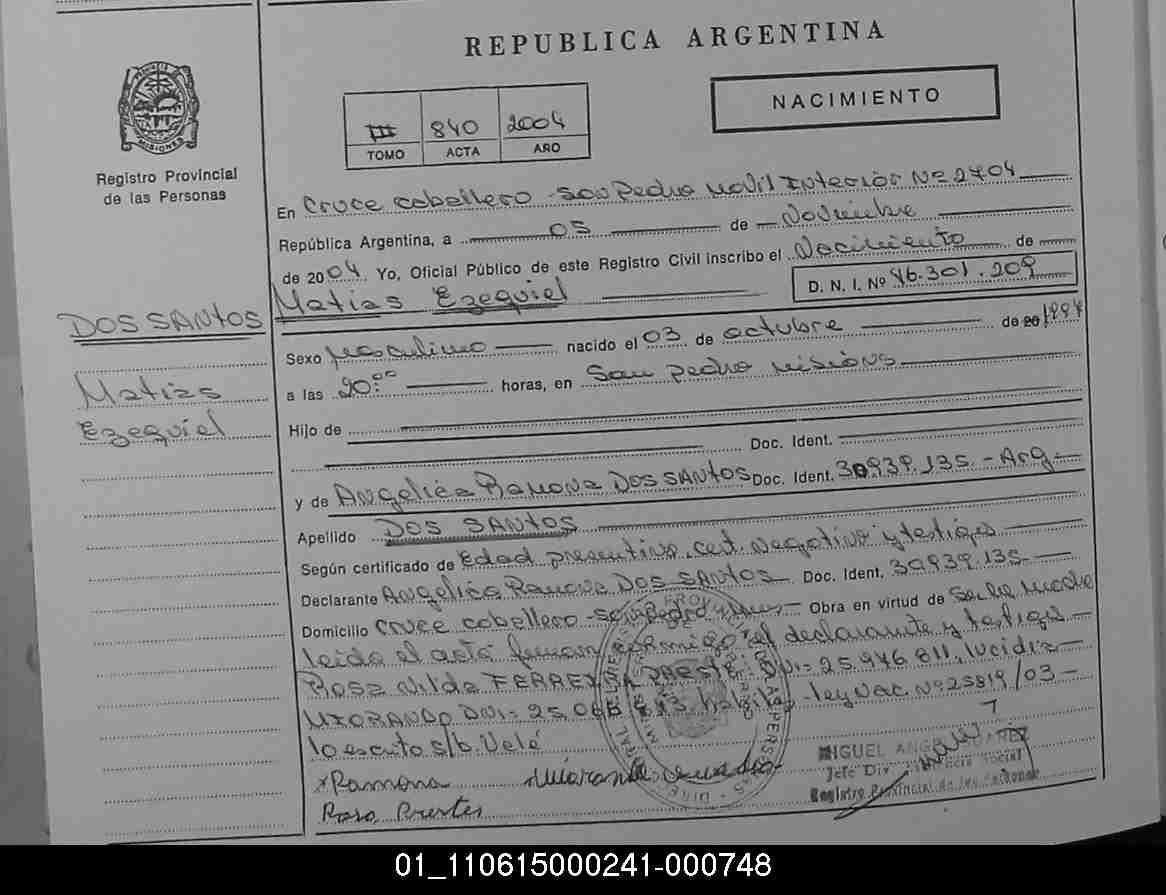 REPUBLICA ARGENTINA
NACIMIENTO
III 840 2004
TOMO ACTA AÑO
PROVINCIA DE MISIONES
Registro Provincial
de las Personas
DOS SANTOS
Matias
Ezequiel
En Cruce Caballero - San Pedro Movil Interior Nº 2404
República Argentina, a 05 de Noviembre
de 2004 Yo, Oficial Público de este Registro Civil inscribo el Nacimiento de
Matias Ezequiel D. N. I. Nº 46.301.209
Sexo Masculino nacido el 03 de octubre de 20 1994
a las 20:00 horas, en San Pedro Misions
Hijo de
Doc. Ident.
y de Angelica Ramona DOS SANTOS Doc. Ident. 30939.135.- Arg-
Apellido DOS SANTOS
Según certificado de Edad presentivo, cert. Negativo y testigos
Declarante Angelica Ramona DOS SANTOS Doc. Ident. 30939.135-
Domicilio Cruce Caballero - San Pedro Obra en virtud de Ser la Madre
leida el acta firman conmigo el declarante y testigos
Rosa Nilda FERREIRA DNI= 25.946.811, lucidia
MIORANDO DNI= 25.06 ley Nac. Nº 25819/03-
lo escrito s/b. Vale
Ramona
MIGUEL ANGEL SUAREZ
Jefe Div. Social
Registro Provincial de las Personas
01_110615000241-000748